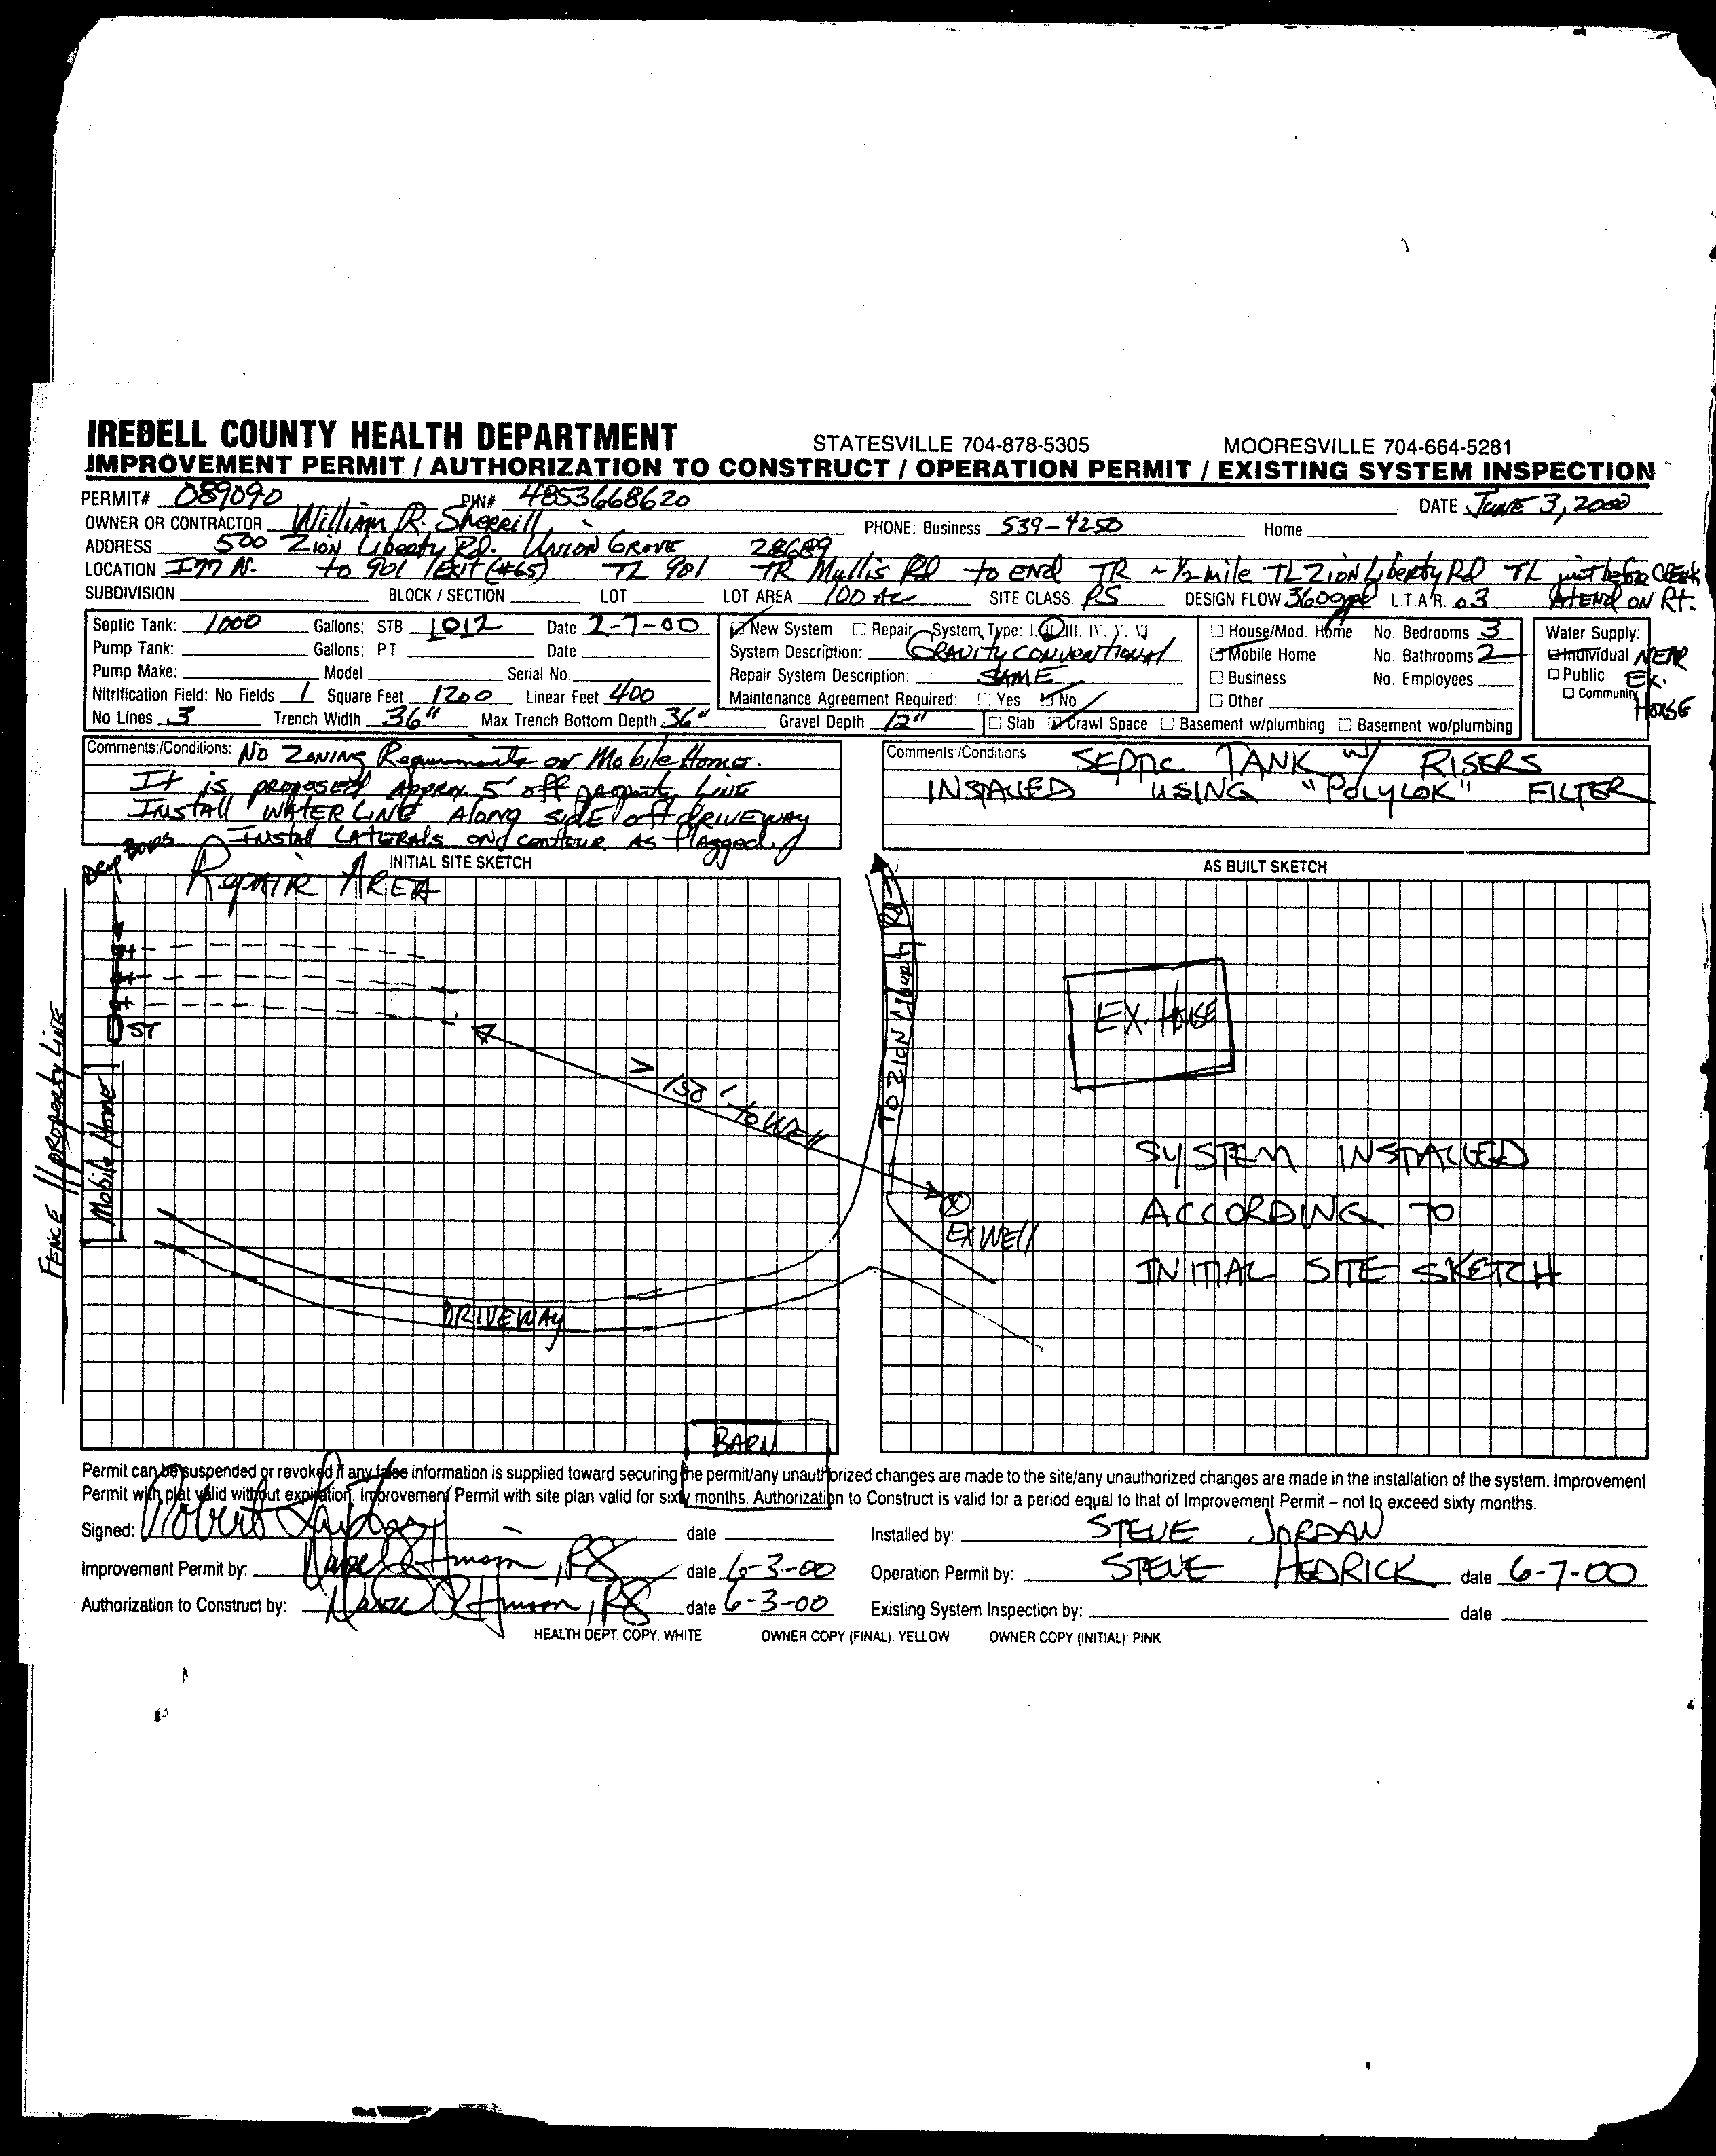 IREDELL COUNTY HEALTH DEPARTMENT STATESVILLE 704-878-5305 MOORESVILLE 704-664-5281
IMPROVEMENT PERMIT / AUTHORIZATION TO CONSTRUCT / OPERATION PERMIT / EXISTING SYSTEM INSPECTION
PERMIT# 089090 PIN# 4853668620 DATE JUNE 3, 2000
OWNER OR CONTRACTOR William R. Sherrill PHONE: Business 539-4250 Home
ADDRESS 500 Zion Liberty Rd. Union Grove 28689
LOCATION I77 N. to 901 Exit (#65) TL 901 TR Mullis Rd to END TR ~ 1/2 mile TL Zion Liberty Rd TL just before CREEK
SUBDIVISION BLOCK / SECTION LOT LOT AREA 100 Ac SITE CLASS. PS DESIGN FLOW 360gpd L.T.A.R. 0.3 At END ON Rt.
Septic Tank: 1000 Gallons; STB 1012 Date 2-7-00 New System Repair System Type: I. II III. IV. V. VI House/Mod. Home No. Bedrooms 3 Water Supply:
Pump Tank: Gallons; PT Date System Description: GRAVITY CONVENTIONAL Mobile Home No. Bathrooms 2 Individual NEAR
Pump Make: Model Serial No. Repair System Description: SAME Business No. Employees Public EX.
Nitrification Field: No Fields 1 Square Feet 1200 Linear Feet 400 Maintenance Agreement Required: Yes No Other Community HOUSE
No Lines 3 Trench Width 36" Max Trench Bottom Depth 36" Gravel Depth 12" Slab Crawl Space Basement w/plumbing Basement wo/plumbing
Comments:/Conditions: No Zoning Requirements on Mobile Homes.
It is proposed Approx. 5' off property Line
Install WATER LINE Along side of driveway
Install LATERALS on contour As flagged
Comments:/Conditions SEPTIC TANK w/ RISERS
INSTALLED USING "POLYLOK" FILTER
Drop Boxes
INITIAL SITE SKETCH
AS BUILT SKETCH
REPAIR AREA
ST
Mobile Home
FENCE // property LINE
> 150' to WELL
To ZION Liberty Rd
EX. HOUSE
EX WELL
DRIVEWAY
BARN
SYSTEM INSTALLED
ACCORDING TO
INITIAL SITE SKETCH
Permit can be suspended or revoked if any false information is supplied toward securing the permit/any unauthorized changes are made to the site/any unauthorized changes are made in the installation of the system. Improvement
Permit with plat valid without expiration. Improvement Permit with site plan valid for sixty months. Authorization to Construct is valid for a period equal to that of Improvement Permit – not to exceed sixty months.
Signed: Robert date Installed by: STEVE JORDAN
Improvement Permit by: , RS date 6-3-00 Operation Permit by: STEVE HEDRICK date 6-7-00
Authorization to Construct by: , RS date 6-3-00 Existing System Inspection by: date
HEALTH DEPT. COPY: WHITE OWNER COPY (FINAL): YELLOW OWNER COPY (INITIAL): PINK